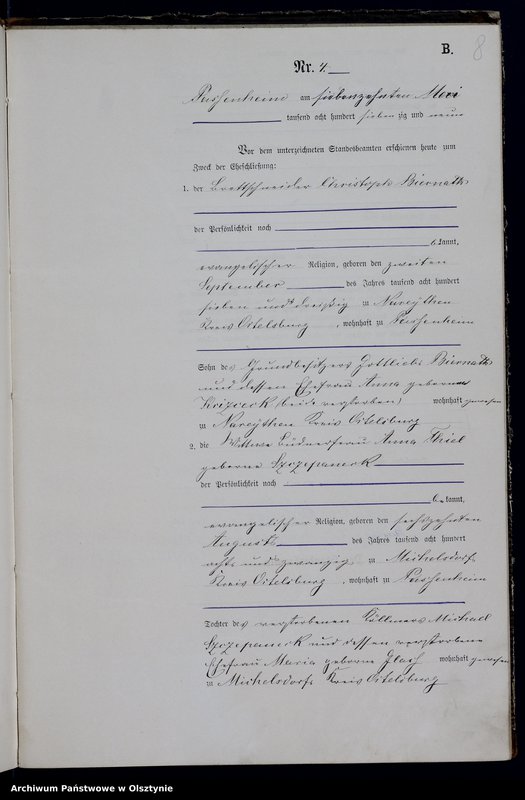 B.
8
Nr. 4.
Passenheim am siebenzehnten Mai
tausend acht hundert siebenzig und neun
Vor dem unterzeichneten Standesbeamten erschienen heute zum
Zweck der Eheschließung:
1. der Brettschneider Christoph Biernath
der Persönlichkeit nach
bekannt,
evangelischer Religion, geboren den zweiten
September des Jahres tausend acht hundert
sieben und dreißig zu Nareythen
Kreis Ortelsburg, wohnhaft zu Passenheim
Sohn des Grundbesitzers Gottlieb Biernath
und dessen Ehefrau Anna geborene
(beide verstorben) wohnhaft gewesen
zu Nareythen Kreis Ortelsburg
2. die Wittwe Büdnerfrau Anna Thiel
geborne Szczepaneck
der Persönlichkeit nach
bekannt,
evangelischer Religion, geboren den sechszehnten
August des Jahres tausend acht hundert
acht und zwanzig zu Michelsdorf
Kreis Ortelsburg, wohnhaft zu Passenheim
Tochter des verstorbenen Köllmers Michael
Szczepaneck und dessen verstorbene
Ehefrau Maria geborne wohnhaft gewesen
zu Michelsdorf Kreis Ortelsburg
Archiwum Państwowe w Olsztynie